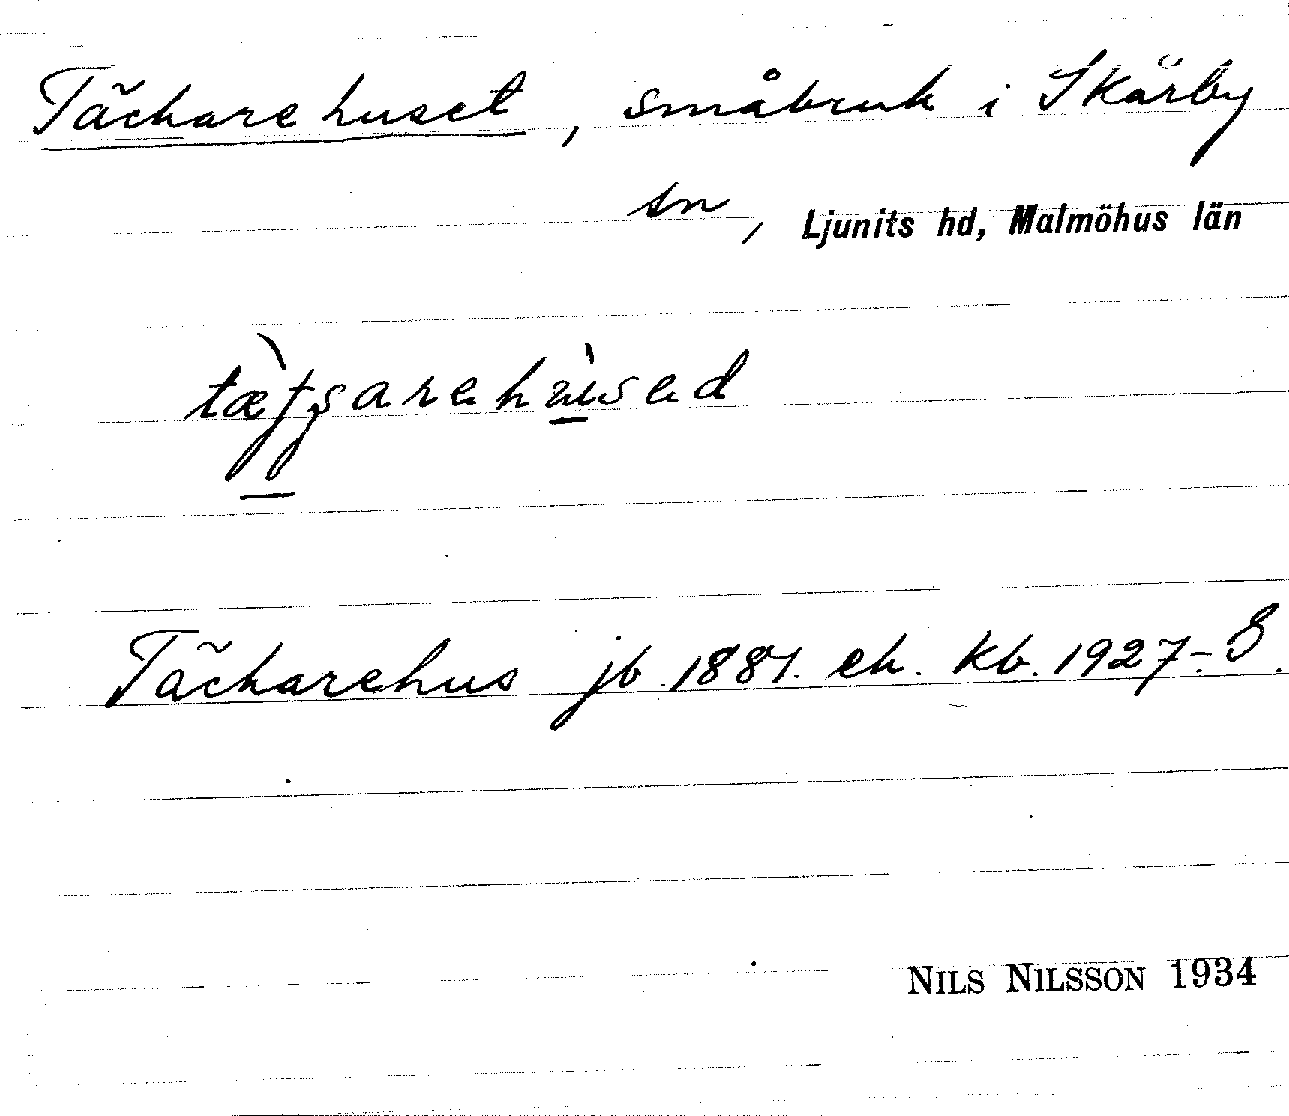 Täckarehuset, småbruk i Skårby
sn, Ljunits hd, Malmöhus län
Täckarehus jb. 1881. ek. kb. 1927-8.
NILS NILSSON 1934